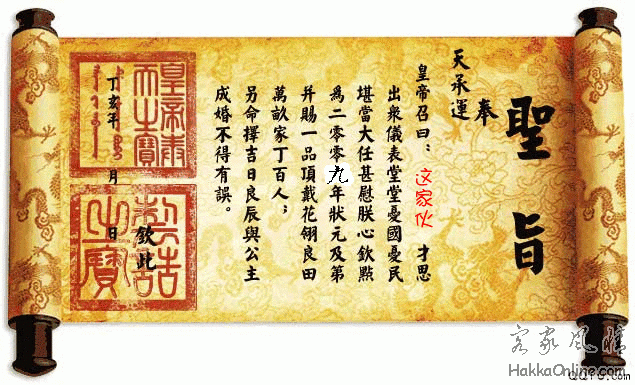 聖旨
奉
天承運
皇帝召曰：这家伙 才思
出衆儀表堂堂憂國憂民
堪當大任甚慰朕心欽點
爲二零零九年狀元及第
并賜一品頂戴花翎良田
萬畝家丁百人；
另命擇吉日良辰與公主
成婚不得有誤。
欽此
丁亥年 月 日
皇帝奉天之寶
制誥之寶
客家風情
HakkaOnline.com